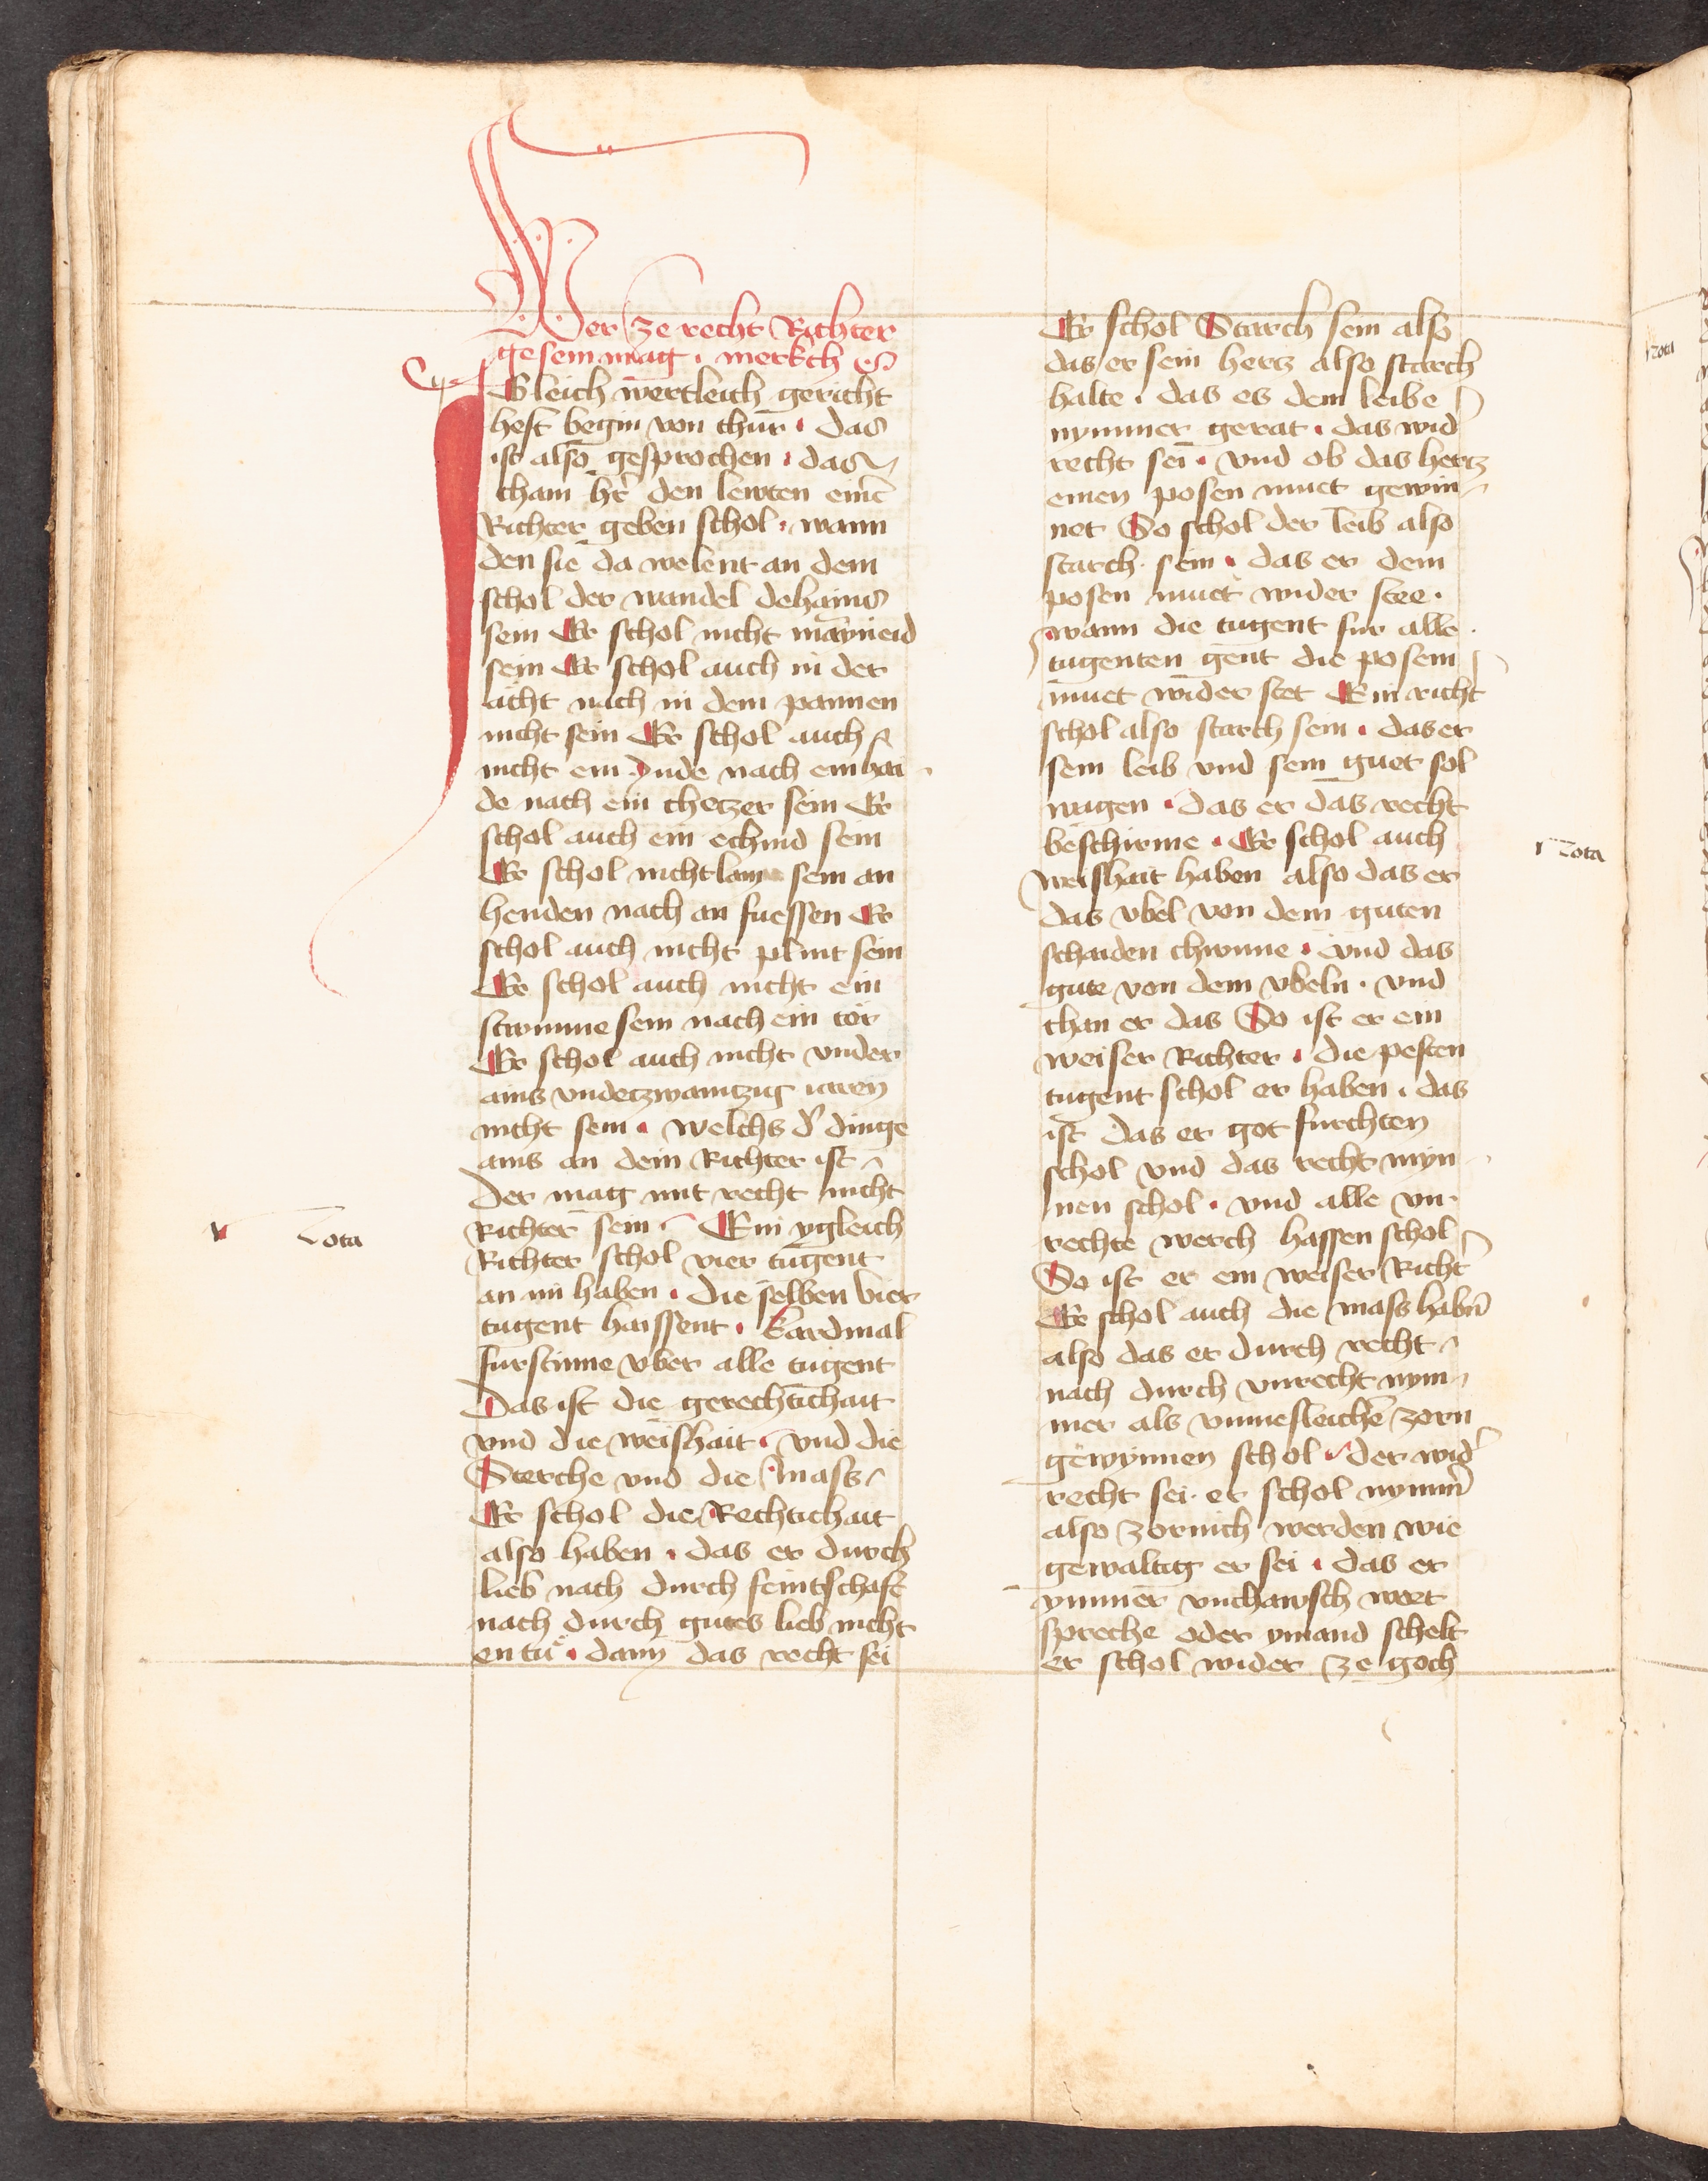 Wer ze recht Richter
gesein mag · merkch es
Igleich wertleich gericht
hest begin von chur · das
ist also gesprochen · das
cham hr̄ den lewten eine
Richter geben schol · wann
den sie da welent an dem
schol der wandel dehains
sein Er schol nicht mayneid
sein Er schol auch in der
ächt nach in dem pannen
nicht sein Er schol auch
nicht ein Jude nach ein hai
de nach ein chetzer sein Er
schol auch ein echind sein
Er schol nicht lam sein an
henden nach an fuessen Er
schol auch nicht plint sein
Er schol auch nicht ein
stumme sein nach ein tör
Er schol auch nicht vnder
ains vndetzwaintzig iaren
nicht sein · welchs d' dinge
ains an dem Richter ist
der mag mit recht nicht
Richter sein · Ein ygleich
Nota
Richter schol vier tugent
an im haben · die selben vier
tugent haissent · Kardinal
furstinne vber alle tugent
Das ist die gerechtichait
vnd die weishait · vnd die
Sterche vnd die mass
Er schol die Rechtichait
also haben · das er durch
lieb nach durch feintschaft
nach durch gutes lieb nicht
entü · dann das recht sei
Er schol Starch sein also
das er sein hertz also starch
halte · das es dem leibe
nymmer gerat · das wid'
recht sei · vnd ob das hertz
einen posen muet gewin
net So schol der leib also
starch sein · das er dem
posen muet wider stee ·
wann die tugent fur alle
tugenten gent die posem
muet wider stet Ein richt'
schol also starch sein · das er
sein leib vnd sein guet sol
wagen · das er das recht
beschirme · Er schol auch
Nota
weishait haben also das er
das vbel von dem guten
schaiden chunne · vnd das
gute von dem vbeln · vnd
chan er das So ist er ein
weiser Richter · die pesten
tugent schol er haben · das
ist das er got furchten
schol vnd das recht myn
nen schol · vnd alle vn
rechte werch hassen schol
So ist er ein weiser Richt'
Er schol auch die mass habn̄
also das er durch recht
nach durch vnrecht nym
mer als vnmesleichē zorn
gewynnen schol · der wid'
recht sei · er schol nymm'
also zornich werden wie
gewaltig er sei · das er
ymmer vnchawsch wort
spreche oder ymand schelt
er schol wider ze goch